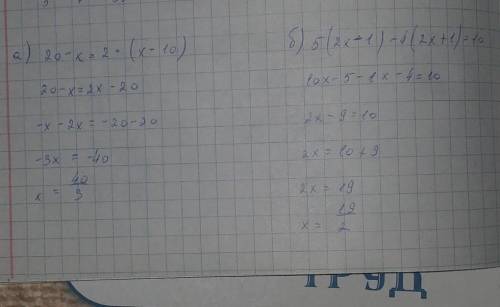 а) 20-x=2·(x-10)
20-x=2x-20
-x-2x=-20-20
-3x=-40
x=40/3
б) 5(2x-1)-4(2x+1)=10
10x-5-8x-4=10
2x-9=10
2x=10+9
2x=19
x=19/2
ТРУД